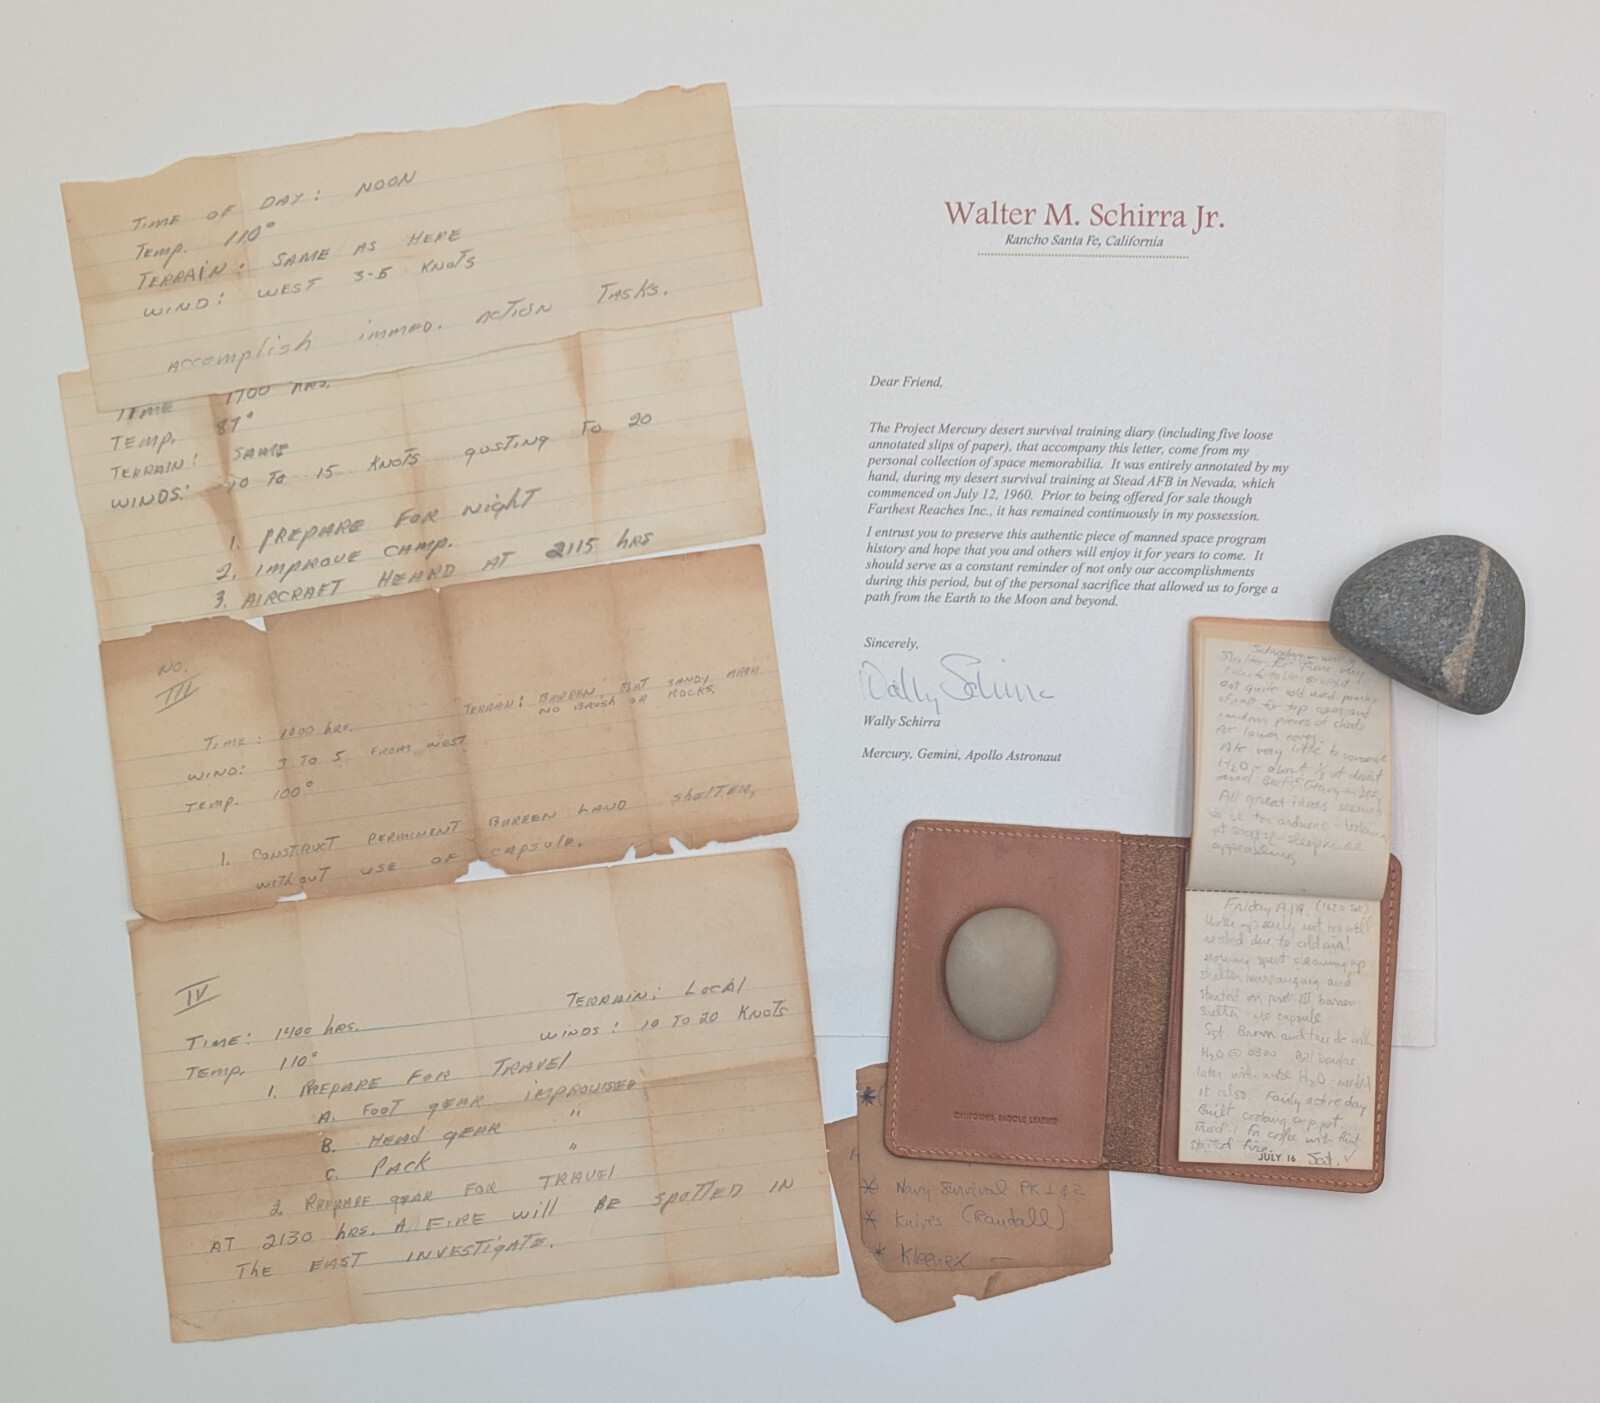 TIME OF DAY: NOON
TEMP. 110°
TERRAIN: SAME AS HERE
WIND: WEST 3-5 KNOTS
ACCOMPLISH IMMED. ACTION TASKS.
TIME 1700 HRS.
TEMP. 87°
TERRAIN: SAME
WINDS: 10 TO 15 KNOTS GUSTING TO 20
1. PREPARE FOR NIGHT
2. IMPROVE CAMP.
3. AIRCRAFT HEARD AT 2115 HRS
NO.
III
TERRAIN: BARREN, FLAT SANDY AREA
NO BRUSH OR ROCKS.
TIME: 1000 HRS.
WIND: 3 TO 5 FROM WEST
TEMP. 100°
1. CONSTRUCT PERMINENT BARREN LAND SHELTER,
WITHOUT USE OF CAPSULE.
IV
TERRAIN: LOCAL
TIME: 1400 HRS.
WINDS: 10 TO 20 KNOTS
TEMP. 110°
1. PREPARE FOR TRAVEL
A. FOOT GEAR IMPROVISED
B. HEAD GEAR "
C. PACK "
2. PREPARE GEAR FOR TRAVEL
AT 2130 HRS. A FIRE WILL BE SPOTTED IN
THE EAST INVESTIGATE.
Walter M. Schirra Jr.
Rancho Santa Fe, California
Dear Friend,
The Project Mercury desert survival training diary (including five loose
annotated slips of paper), that accompany this letter, come from my
personal collection of space memorabilia. It was entirely annotated by my
hand, during my desert survival training at Stead AFB in Nevada, which
commenced on July 12, 1960. Prior to being offered for sale though
Farthest Reaches Inc., it has remained continuously in my possession.
I entrust you to preserve this authentic piece of manned space program
history and hope that you and others will enjoy it for years to come. It
should serve as a constant reminder of not only our accomplishments
during this period, but of the personal sacrifice that allowed us to forge a
path from the Earth to the Moon and beyond.
Sincerely,
Wally Schirra
Wally Schirra
Mercury, Gemini, Apollo Astronaut
Saturday
not quite cold used
top cover and
random pieces of chute
for lower cover.
Ate very little to conserve
H2O - about 1/3 of
and Beef & Gravy
All great ideas seem
to be too arduous - looking
at
appealing
Friday A.M.
Woke up early not too well
rested due to cold air!
Morning spent cleaning up
shelter rearranging and
started on prob. III barren
shelter - no capsule
Sgt. Brown and
H2O @ 0800 Bill Douglas
later with more H2O - needed
it also. Fairly active day
Built cooking
Tried for coffee with
started fire.
JULY 16 Sat.
CALIFORNIA SADDLE LEATHER
* Navy Survival PK 1 & 2
* Knives (Randall)
* Kleenex —